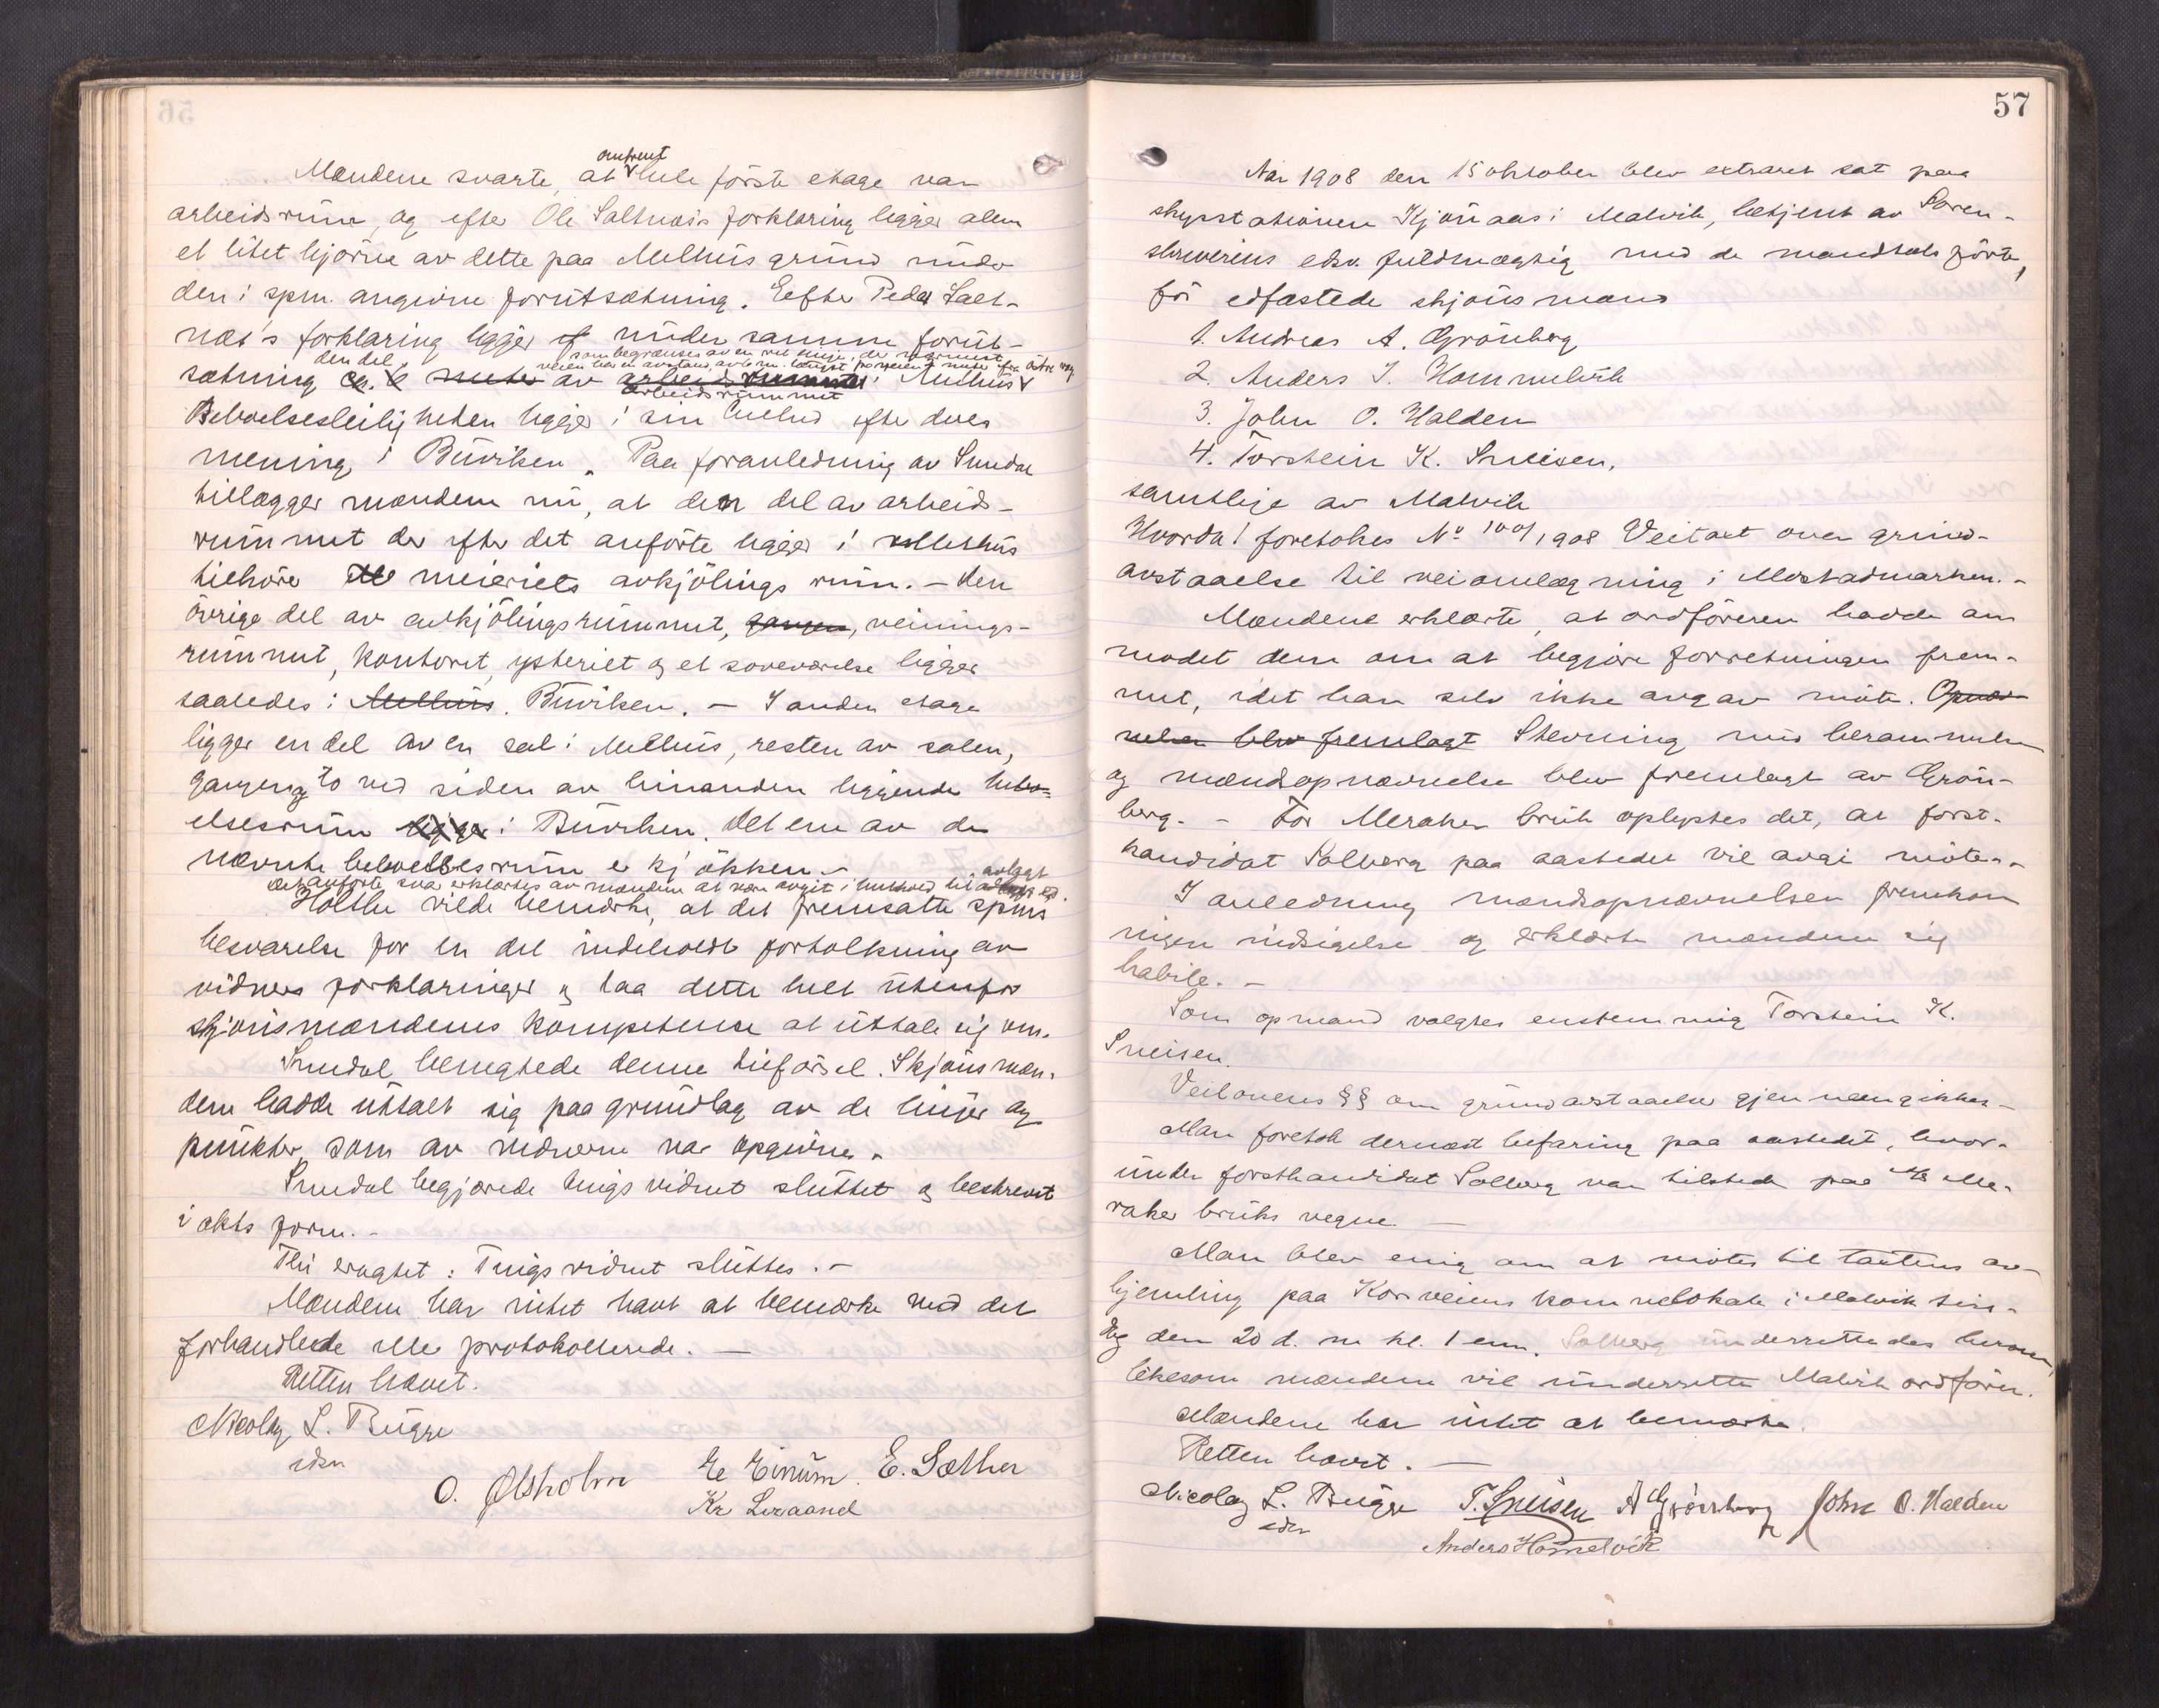 Mændene svarte, at omtrent hele förste etage var
arbeidsrum, og efter Ole Saltnæss forklaring ligger alene
et litet hjörne av dette paa Melhus grund under
den i spm. angivne forutsætning. Eefter Peder Salt-
næs's forklaring ligger under samme forut-
sætning den del av arbeidsrummet i Melhus
som begrænses av en ret linje, der nærmest
veien har en avstand av 6 m. længst fra veien fra östre væg
Beboelsesleiligheten ligger i sin helhed efter deres
mening i Buviken. Paa foranledning av Sundal
tillægger mændene nu, at den del av arbeids-
rummet der efter det anförte ligger i Melhus
tilhöre meieriets avkjölings rum. – Den
övrige del av avkjölingsrummet, gangen, veinings-
rummet, kontoret, ysteriet og et soveværelse ligger
saaledes i Melhus. Buviken. – I anden etage
ligger en del av en sal i Melhus, resten av salen,
gangen og to ved siden av hinanden liggende bebo-
elsesrum ligger i Buviken. Det ene av de
nævnte beboelsesrum er kjökken. –
Det anförte svar erklærtes av mændene at være avgit i henhold til avlagt ed.
Holthe vilde bemerke, at det fremsatte spms
besvarelse for en del indeholdt fortolkning av
vidners forklaringer og laa dette helt utenfor
skjönsmændenes kompetense at uttale sig om.
Sundal benegtede denne tilförsel. Skjönsmæn-
dene hadde uttalt sig paa grundlag av de linjer og
punkter, som av vidnerne var opgivne.
Sundal begjærede tingsvidnet sluttet og beskrevet
i akts form. –
Thi eragtet: Tingsvidnet sluttes. –
Mændene har intet havt at bemerke ved det
forhandlede eller protokollerede. –
Retten hævet.
Nicolay L. Bugge
edsv
O. Ølsholm E Einum. E. Sæther
Kr Leraand
57
Aar 1908 den 15 oktober blev extraret sat paa
skysstationen Kjönaas i Malvik, betjent av Soren-
skriverens edsv. fuldmægtig med de mandtals förte,
för edfæstede skjönsmænd
1. Andreas A. Grönberg
2. Anders J. Hommelvik
3. John O. Halden
4. Torstein K. Sneisen,
samtlige av Malvik
Hvorda! foretokes No 100/1908 Veitaxt over grund-
avstaaelse til veiomlægning i Mostadmarken. –
Mændene erklærte, at ordföreren hadde an
modet dem om at begjære forretningen frem-
met, idet han selv ikke avgav möte. Opnæv-
nelsen blev fremlagt Stevning med berammelse
og mændsopnævnelse blev fremlagt av Grön-
berg. – For Meraker bruk oplystes det, at forst-
kandidat Solberg paa aastedet vil avgi möte. –
I anledning mændsopnævnelsen fremkom
ingen indsigelse og erklærte mændene sig
habile. –
Som opmand valgtes enstemmig Torstein K.
Sneisen.
Veilovens §§ om grundavstaaelse gjennemgikkes –
Man foretok dernæst befaring paa aastedet, hvor-
under forstkandidat Solberg var tilstede paa A/S Me-
raker bruks vegne. –
Man blev enig om at mötes til taxtens av-
hjemling paa Kornveiens lokale i Malvik tirs-
dag den 20 d. m kl. 1 em. Solberg underrettedes herom,
likesom mændene vil underrette Malvik ordförer.
Mændene har intet at bemærke.
Retten hævet. –
Nicolay L. Bugge T. Sneisen A Grönberg John O. Halden
edsv
Anders Homelvik